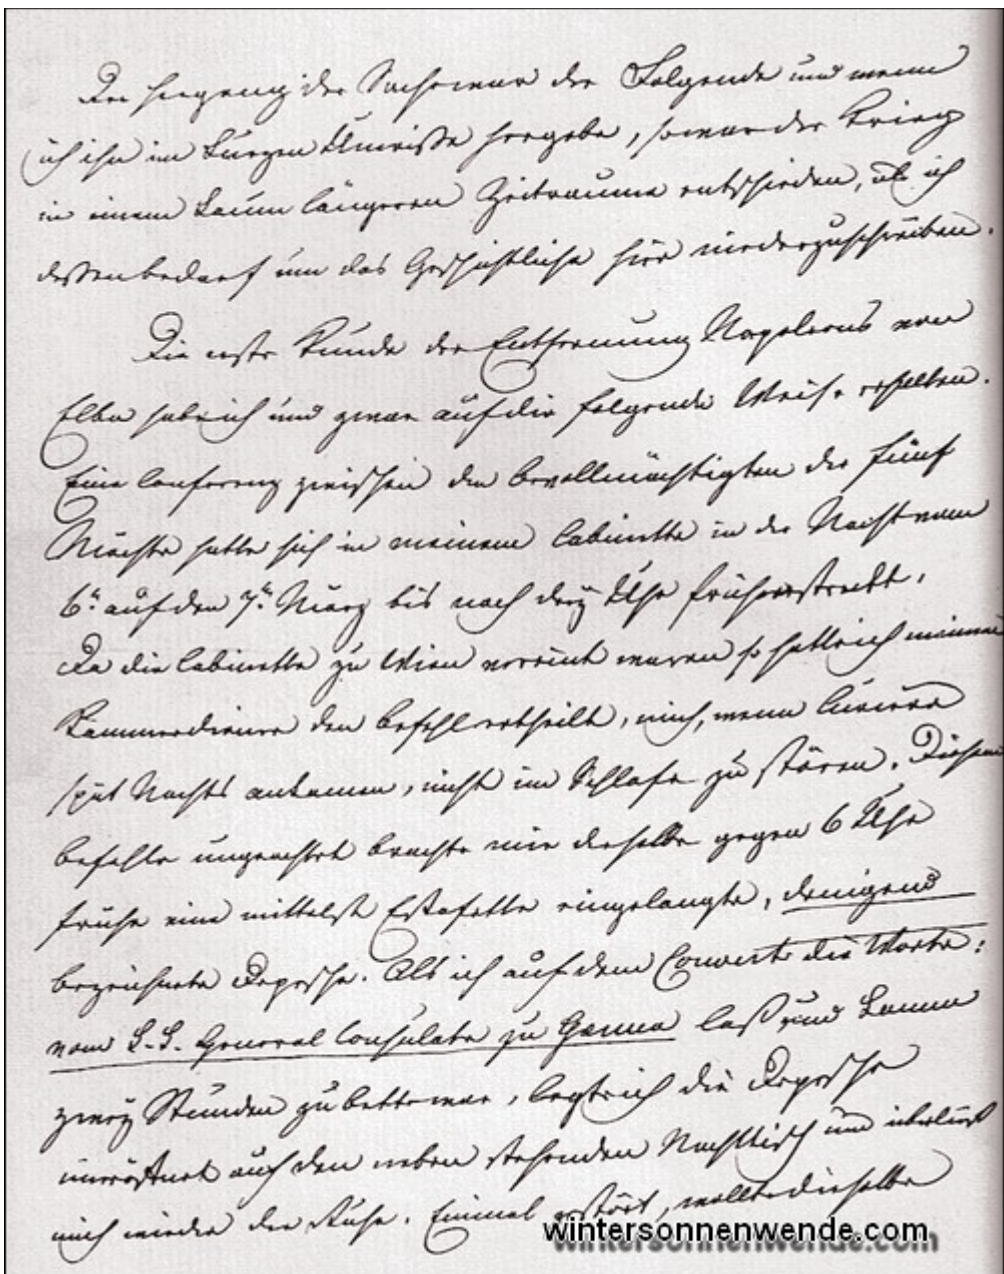 Der Hergang der Sache war der Folgende und wenn
ich ihn im kurzen Umrisse hergebe, so war der Krieg
in einem kaum längeren Zeitraume entschieden, als ich
dessen bedarf um das Geschichtliche hier niederzuschreiben.
Die erste Kunde der Entfernung Napoleons von
Elba habe ich und zwar auf die folgende Weise erhalten.
Eine Conferenz zwischen den bevollmächtigten der fünf
Mächte hatte sich in meinem Cabinette in der Nacht vom
6t auf den 7t März bis nach drey Uhr früh erstreckt.
Da die Cabinette zu Wien vereint waren so hatte ich meinem
Kammerdiener den befehl ertheilt, mich, wenn Curiere
spät Nachts ankamen, nicht im Schlafe zu stören. Diesem
befehle ungeachtet brachte mir derselbe gegen 6 Uhr
frühe eine mittelst Estafette eingelangte, dringend
bezeichnete Depesche. Als ich auf dem Couverte die Worte:
vom k.k. General Consulate zu Genua las und kaum
zwey Stunden zu bette war, legte ich die Depesche
uneröffnet auf den neben stehenden Nachttisch und überließ
mich wieder der Ruhe. Einmal gestört, wollte dieselbe
wintersonnenwende.com